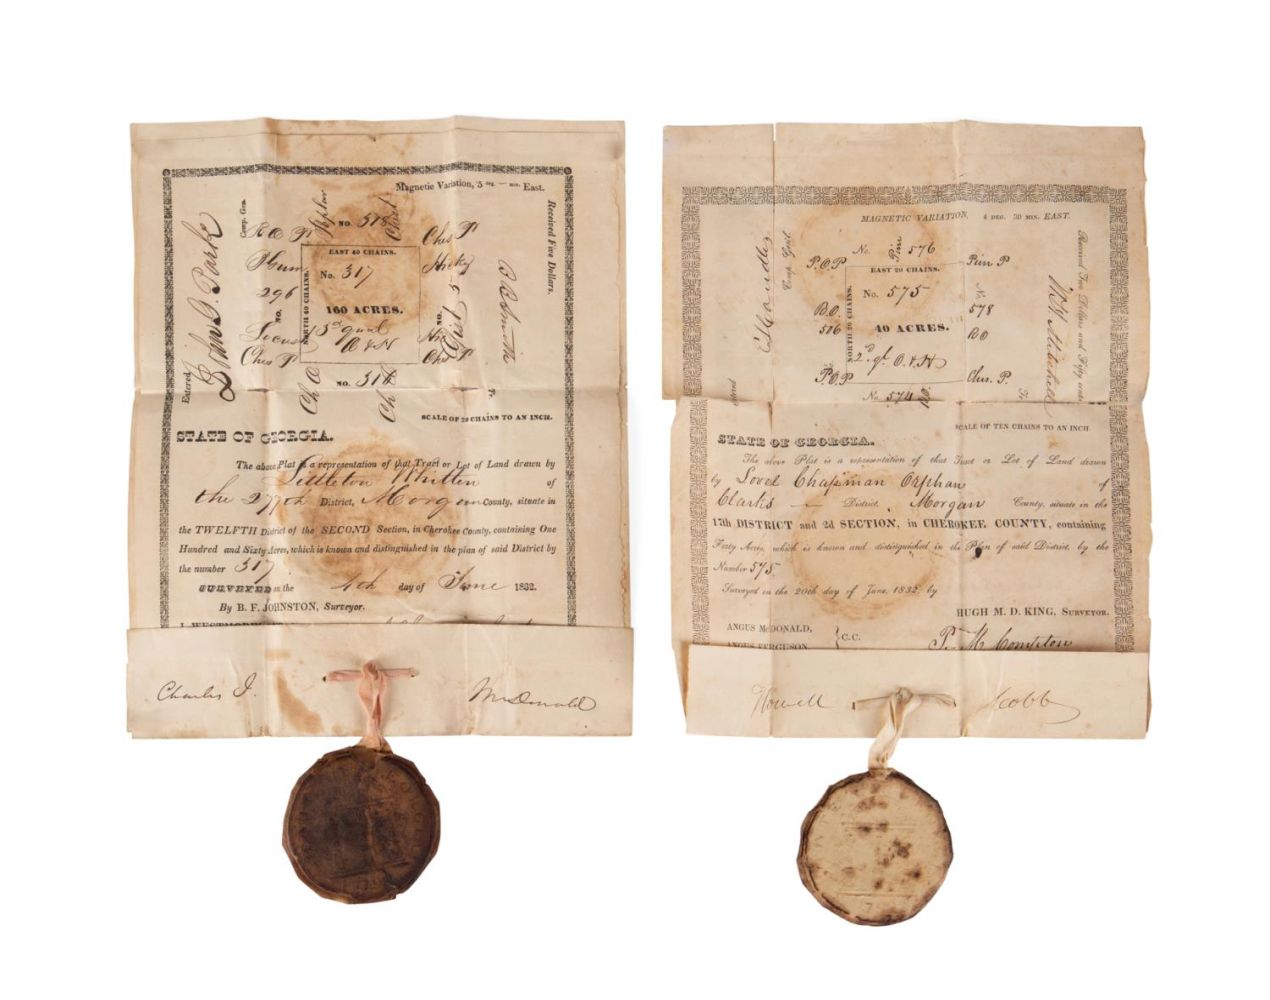 Magnetic Variation, 5 DEG. — MIN. East.
Entered
John G. Park
Comp. Gen.
Received Five Dollars.
296
NO.
Ches P
NO. 318
EAST 40 CHAINS.
NORTH 40 CHAINS.
No. 317
160 ACRES.
3d qual
O & H
NO. 316
Ches P
Hicky
NO.
SCALE OF 20 CHAINS TO AN INCH.
STATE OF GEORGIA.
The above Plat is a representation of that Tract or Lot of Land drawn by
Littleton Whitten of
the 277th District, Morgan County, situate in
the TWELFTH District of the SECOND Section, in Cherokee County, containing One
Hundred and Sixty Acres, which is known and distinguished in the plan of said District by
the number 317
SURVEYED on the 4th day of June 1832.
By B. F. JOHNSTON, Surveyor.
Charles J. McDonald
MAGNETIC VARIATION, 4 DEG. 30 MIN. EAST.
Comp. Genl
Received Two Dollars and Fifty cents
P.O.P
B.O.
506
P.O.P
No. Pine 576
EAST 20 CHAINS.
NORTH 20 CHAINS.
No. 575
40 ACRES.
2d ql. O & H
No. 574
Pine P
No.
578
RO
Ches. P.
W. H. Mitchell
SCALE OF TEN CHAINS TO AN INCH
STATE OF GEORGIA.
The above Plat is a representation of that Tract or Lot of Land drawn
by Lovel Chapman Orphan of
Clarks — District, Morgan County, situate in the
15th DISTRICT and 2d SECTION, in CHEROKEE COUNTY, containing
Forty Acres, which is known and distinguished in the Plan of said District, by the
Number 575.
Surveyed in the 20th day of June, 1832, by
HUGH M. D. KING, SURVEYOR.
ANGUS McDONALD,
ANGUS FERGUSON, } C.C.
P. M. Compton
Howell Cobb